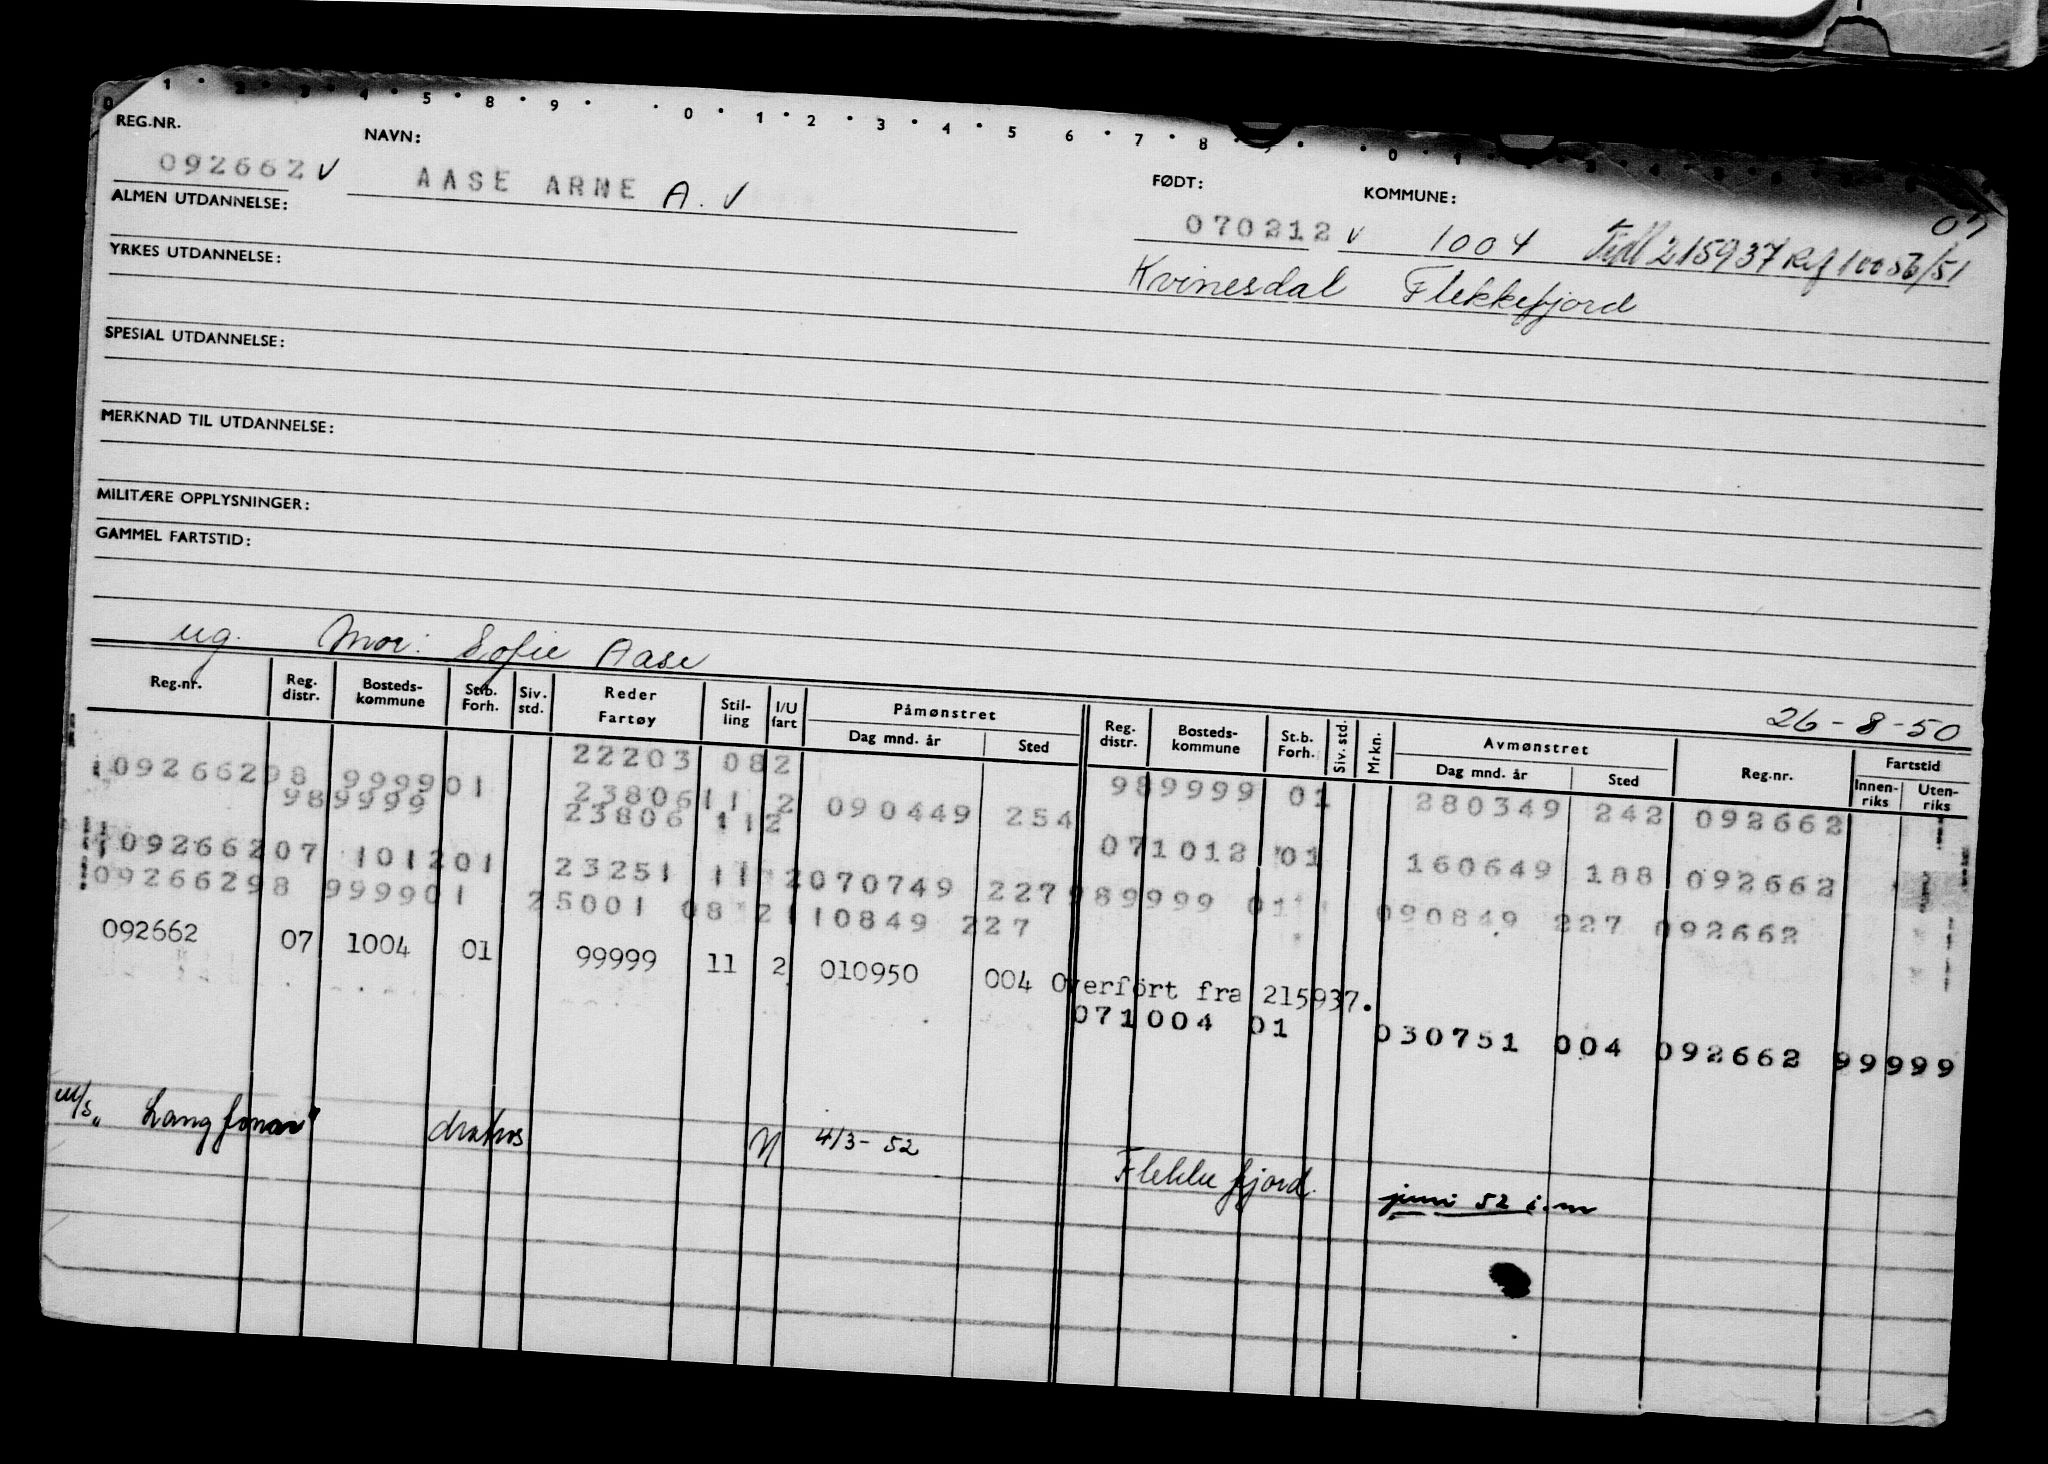 0 1 · 2 · 3 · 4 · 5 · 8 · 9 · · 0 · 1 · 2 · 3 · 4 · 5 6 · 7 · 8 · · 0 · 1
REG.NR. NAVN: FØDT: KOMMUNE: 07
092662 V AASE ARNE A. V 070212 v 1004 Tidl 215937 Ref 10056/51
ALMEN UTDANNELSE: Kvinesdal Flekkefjord
YRKES UTDANNELSE:
SPESIAL UTDANNELSE:
MERKNAD TIL UTDANNELSE:
MILITÆRE OPPLYSNINGER:
GAMMEL FARTSTID:
ug. Mor: Sofie Aase
26-8-50
Reg.nr. Reg. distr. Bosteds-kommune St.b. Forh. Siv. std. Reder Fartøy Stil-ling I/U fart Påmønstret Dag mnd. år Sted Reg. distr. Bosteds-kommune St.b. Forh. Siv. std. Mrkn. Avmønstret Dag mnd. år Sted Reg.nr. Fartstid Innen-riks Uten-riks
09266298 999901 22203 082 989999 01 280349 242 092662
989999 23806 11 2 090449 254
23806 112 071012 01 160649 188 092662
09266207 101201 23251 11 2070749 227 989999 01 090849 227 092662
09266298 999901 25001 08 2110849 227
092662 07 1004 01 99999 11 2 010950 004 Overført fra 215937.
071004 01 030751 004 092662 99999
m/s „Langfonn" N 4/3-52 Flekkefjord. juni 52 i.m